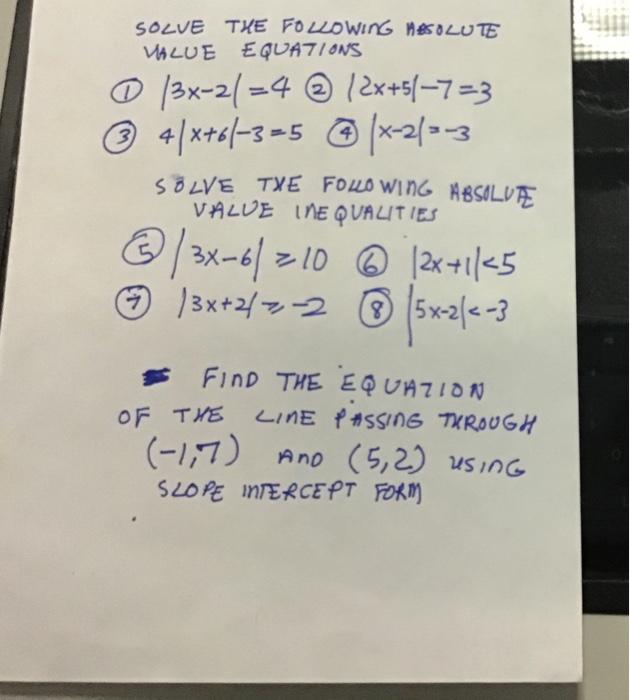 SOLVE THE FOLLOWING ABSOLUTE
VALUE EQUATIONS
① |3x-2|=4 ② |2x+5|-7=3
③ 4|x+6|-3=5 ④ |x-2|=-3
SOLVE THE FOLLOWING ABSOLUTE
VALUE INEQUALITIES
⑤ |3x-6| ≥10 ⑥ |2x+1|<5
⑦ |3x+2| ≥ -2 ⑧ |5x-2|<-3
FIND THE EQUATION
OF THE LINE PASSING THROUGH
(-1,7) AND (5,2) USING
SLOPE INTERCEPT FORM